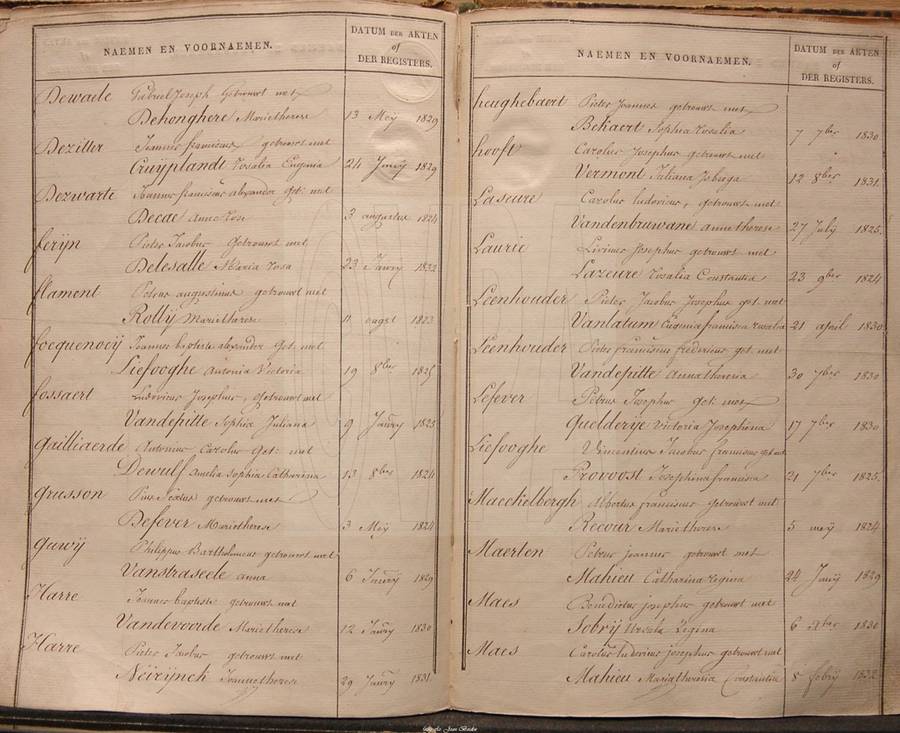 NAEMEN EN VOORNAEMEN.
DATUM DER AKTEN
of
DER REGISTERS.
Dewaele Gabriel Joseph Getrouwt met
Dehonghere Marietherese 13 Meÿ 1829
Dezitter Joannes franciscus getrouwt met
Cruÿplandt Rosalia Eugenia 24 Junÿ 1829
Dezwarte Joannes franciscus alexander Get: met
Decae Anne Rose 3 augustus 1824
ferÿn Pieter Jacobus Getrouwt met
Delesalle Maria Rosa 23 Janrÿ 1832
flament Petrus augustinus getrouwt met
Rollÿ Marietherese 11 augst 1823
focquenoÿ Joannes baptiste alexander Get: met
Liefooghe Antonia Victoria 19 8ber 1825
fossaert Ludovicus Josephus, Getrouwt met
Vandepitte Sophia Juliana 9 Janrÿ 1825
Gailliaerde Antonius Carolus Get: met
Dewulf Amelia Sophia Catharina 13 8ber 1824
Grusson Pius Sextus getrouwt met
Defever Marietherese 3 Meÿ 1824
Guwÿ Philippus Bartholomeus getrouwt met
Vanstraseele anna 6 Janrÿ 1829
Harre Joannes baptiste getrouwt met
Vandevoorde Marietherese 12 Janrÿ 1830
Harre Pieter Jacobus getrouwt met
Neirÿnck Joannatherese 29 Janrÿ 1831
NAEMEN EN VOORNAEMEN.
DATUM DER AKTEN
of
DER REGISTERS.
heughebaert Pieter Joannes getrouwt met
Bekaert Sophia Rosalia 7 7ber 1830
hooft Carolus Josephus getrouwt met
Vermont Juliana 12 8ber 1831
Laseure Carolus ludovicus, getrouwt met
Vandenbruwane Annetherese 27 Julÿ 1825
Laurie Livinus Josephus getrouwt met
Lazeure Rosalia Constantia 23 9ber 1824
Leenhouder Pieter Jacobus Josephus get: met
Vanlatum Eugenia francisca 21 april 1830
Leenhouder Pieter franciscus fredericus get: met
Vandepitte Annatheresia 30 7ber 1830
Lefever Petrus Josephus Get: met
Quelderÿe Victoria Josephina 17 7ber 1830
Liefooghe Vincentius Jacobus franciscus get met
Provoost Josephina francisca 21 7ber 1825
Maeckelbergh Albertus franciscus Getrouwt met
Recour Marietherese 5 meÿ 1824
Maerten Petrus joannes getrouwt met
Mahieu Catharina regina 24 Junÿ 1829
Maes Benedictus josephus getrouwt met
Sobrÿ Ursula Regina 6 xber 1830
Maes Carolus ludovicus josephus getrouwt met
Mahieu Mariatheresia Constantia 8 febrÿ 1832